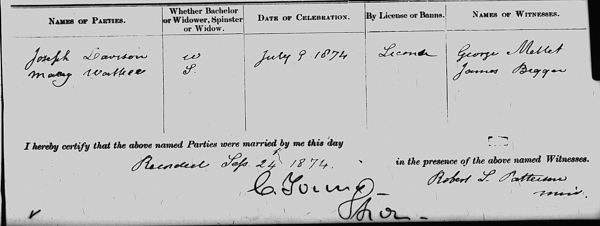 NAMES OF PARTIES. Whether Bachelor or Widower, Spinster or Widow. DATE OF CELEBRATION. By License or Banns. NAMES OF WITNESSES.
Joseph Davison W July 9 1874 License George Mellet
Mary Walker S. James Beggar
I hereby certify that the above named Parties were married by me this day
Recorded Sep 24 1874. in the presence of the above named Witnesses.
C. Young Robert L. Patterson
min.